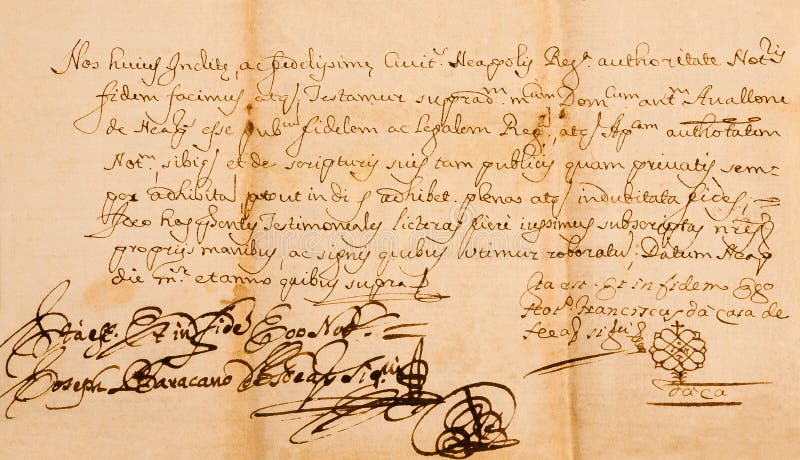 Nos huius Inclitę, ac fidelissimę Civit.s Neapolis Reg.a authoritate Not.rij
fidem facimus atq; Testamur suprad.m m.cum Dom.cum ant.m Avallone
de Neap. esse pub.cum fidelem ac Legalem Reg.a, atq; Ap.cam authoritatem
Not.m, sibiq; et de scripturis suis tam publicis quam privatis sem-
per adhibita, prout in di s adhibet. plena atq; indubitata fides,
Ideo has p̃sentes Testimoniales licteras fieri iussimus subscriptas nr̃is
proprijs manibus, ac signis quibus utimur roboratus, Datum Neap
die m.e et anno quibus supra
Ita est. Et in fidem Ego
Not.s Franciscus da Casa de
Neap. sig.vi
da Ca
Ita est. Et in fidẽ Ego Not.s
Joseph Maracano de Neap. sig.vi